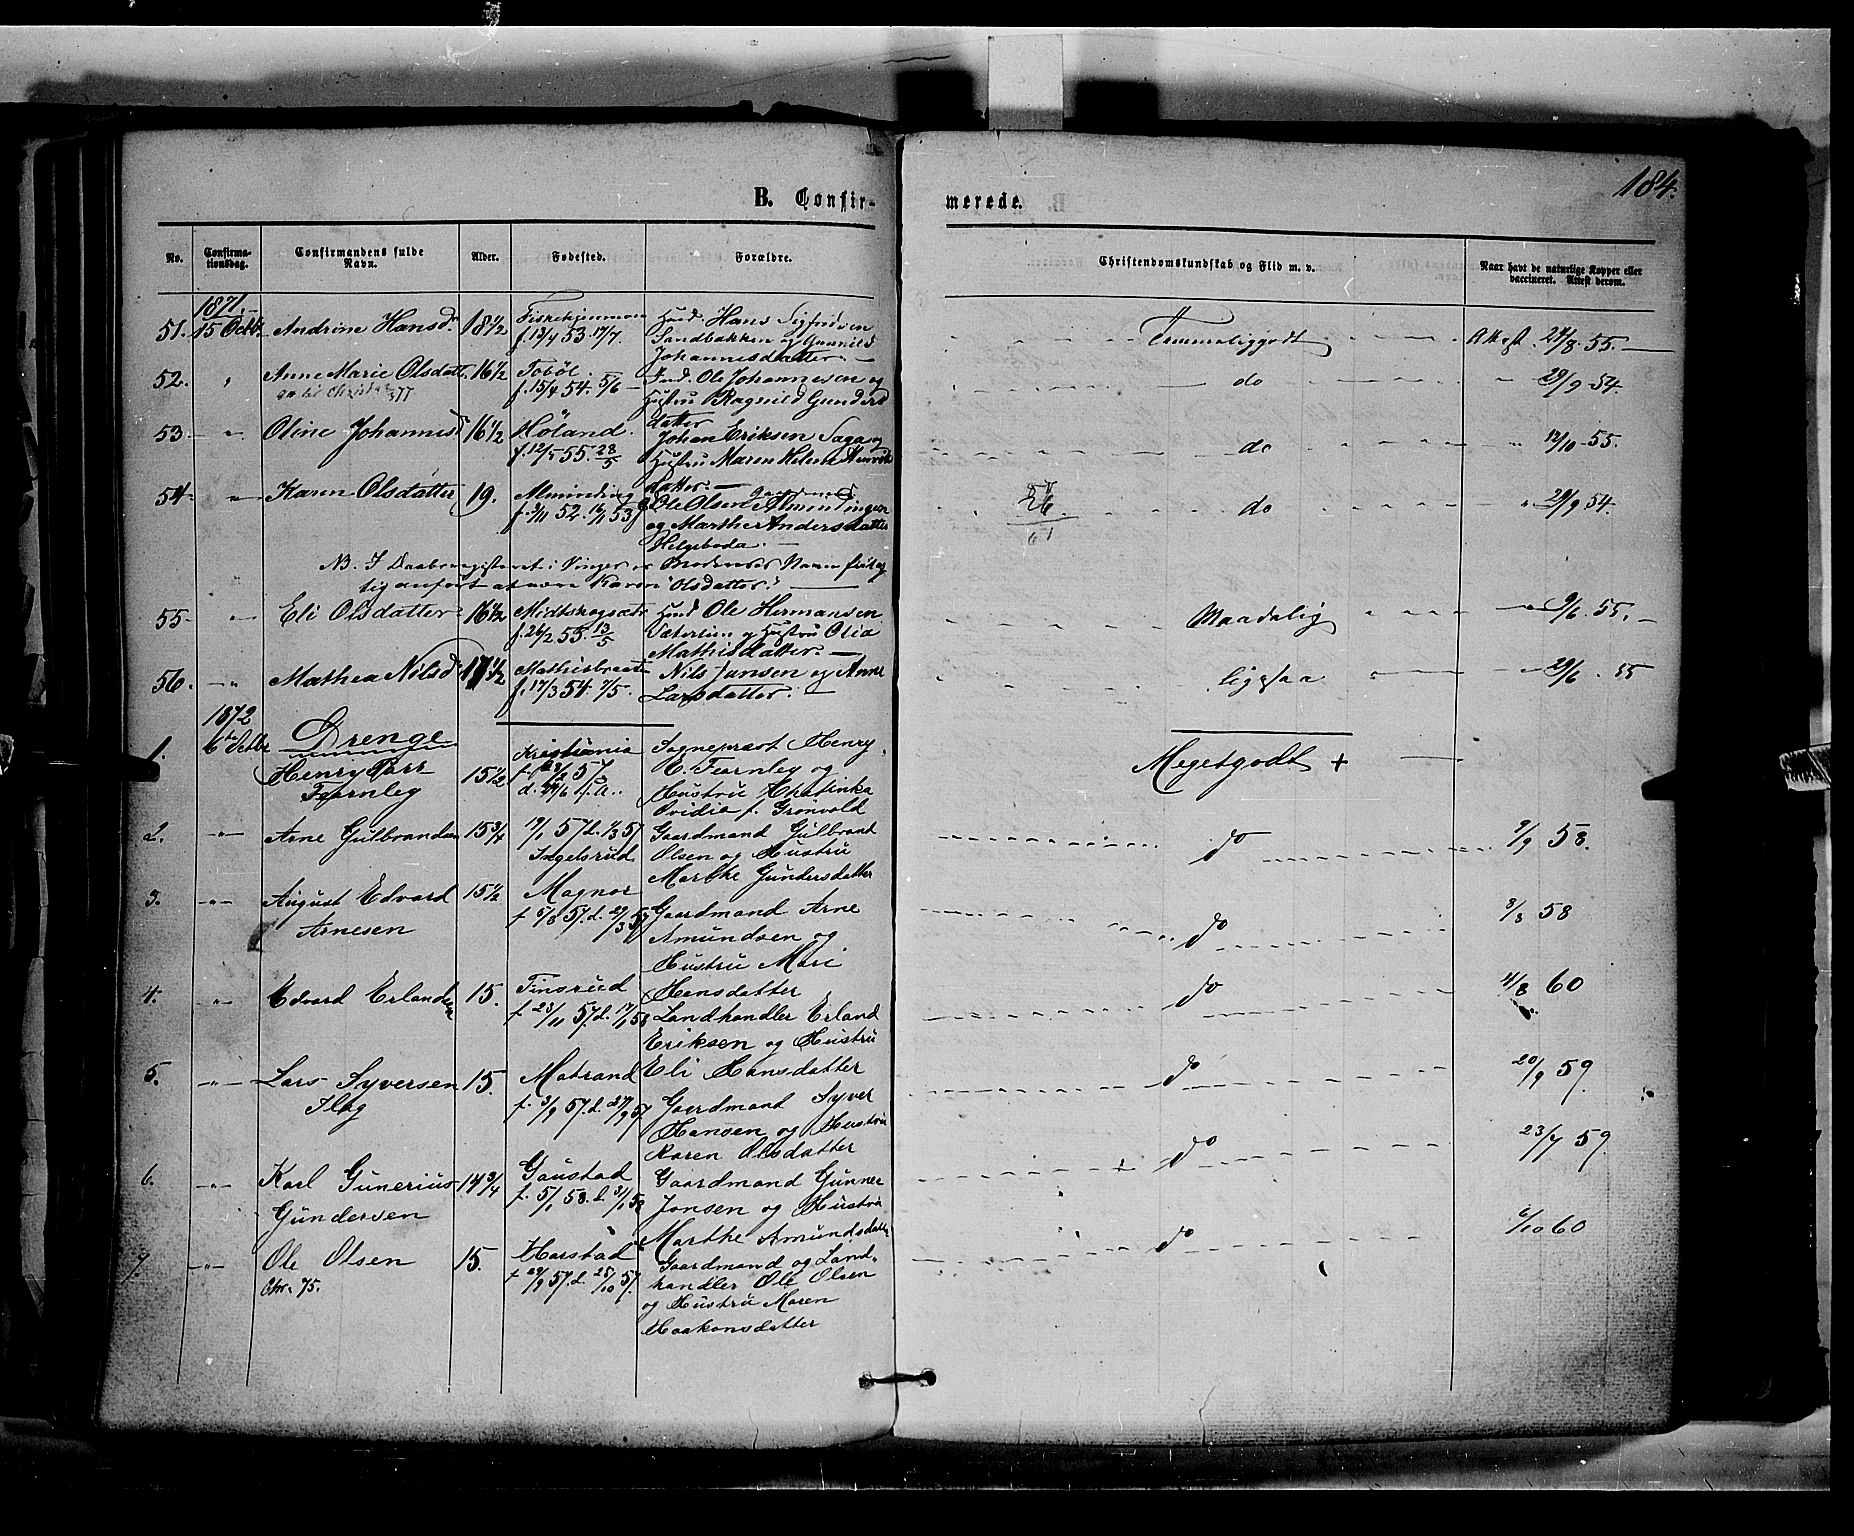 184.
B. Confir-
merede.
No.
Confirma-
tionsdag.
Confirmandens fulde
Navn.
Alder.
Fødested.
Forældre.
Christendomskundskab og Flid m. v.
Naar havt de naturlige Kopper eller
vaccineret. Attest derom.
1871.
51. 15 Octb. Andrine Hansd. 18 1/2
f. 13/4 53 17/7.
Husd. Hans Sigfridsen
Sandbakken og Gunnild
Johannisdatter. —
Temmeliggodt Attest 24/8 55. —
52. " Anne Marie Olsdatt. 16 1/2 Tobøl.
f. 15/4 54. 5/6 —
Ind. Ole Johannesen og
Hustru Ragnild Gunders
datter
do 29/9 54.
53 " Oline Johannisd 16 1/2 Høland.
f. 12/5 55. 28/5
Johan Eriksen Saga og
Hustru Maren Helene Henrik
datter. —
do " 12/10 55.
54 " Karen Olsdatter 19. Alminding
f. 3/11 52. 16/1 53
Ole Olsen Almindingen
og Marthe Andersdatter
Helgeboda. —
do " 29/9 54.
NB. I Daabsregisteret i Vinger er Navn feilag
tig anført at være Karen Olsdatter. —
55. " Eli Olsdatter 16 1/2 Midtskogsæter
f. 26/2 55. 13/5
Husd Ole Hermansen
Sætersien og Hustru Olia
Mathisdatter. —
Maadelig 9/6 55. —
56. " Mathea Nilsd 17 1/2 Mathisbraaten
f. 17/3 54 7/5
Nils Jansen og Anne
Larsdatter. —
ligesaa 29/6 55
1872
6te Octbr
Drenge
1. Henry Parr
Fearnley
15 1/2 Kristiania
f. 23/2 57
d. 24/6 s. a.
Sogneprest Henry
E. Fearnley og
Hustru Katinka
Ovidia f. Grønvold
Megetgodt +
2. " Arne Gulbrandsen 15 3/4 19/1 57 d. 1/3 57
Ingelsrud
Gaardmand Gulbrant
Olsen og Hustru
Marthe Gundersdatter
do 9/9 58.
3. " August Edvard
Arnesen
15 1/2 Magnor
Gaardmand Arne
Amundsen og
Hustru Mari
Hansdatter
do 3/8 58
4. " Edvard Erlandsen 15. Finsrud
f. 23/11 57. d. 17/1 58
Landhandler Erland
Eriksen og Hustru
Eli Hansdatter
do 11/8 60
5. " Lars Syversen
Flag
15. Matrand
f. 3/9 57. d. 27/9 57
Gaardmant Syver
Hansen og Hustru
Karen Olsdatter
do 20/9 59
6. " Karl Gunerius
Gundersen
14 3/4 Gaustad
f. 5/1 58. d. 31/1 58
Gaardmand Gunner
Jonsen og Hustru
Marthe Amundsdatter
do 23/7 59
7. " Ole Olsen 15. Harstad
f. 29/9 57. d. 25/10 57.
Gaardmand og Land-
handler Ole Olsen
og Hustru Maren
Haakonsdatter
do 6/10 60